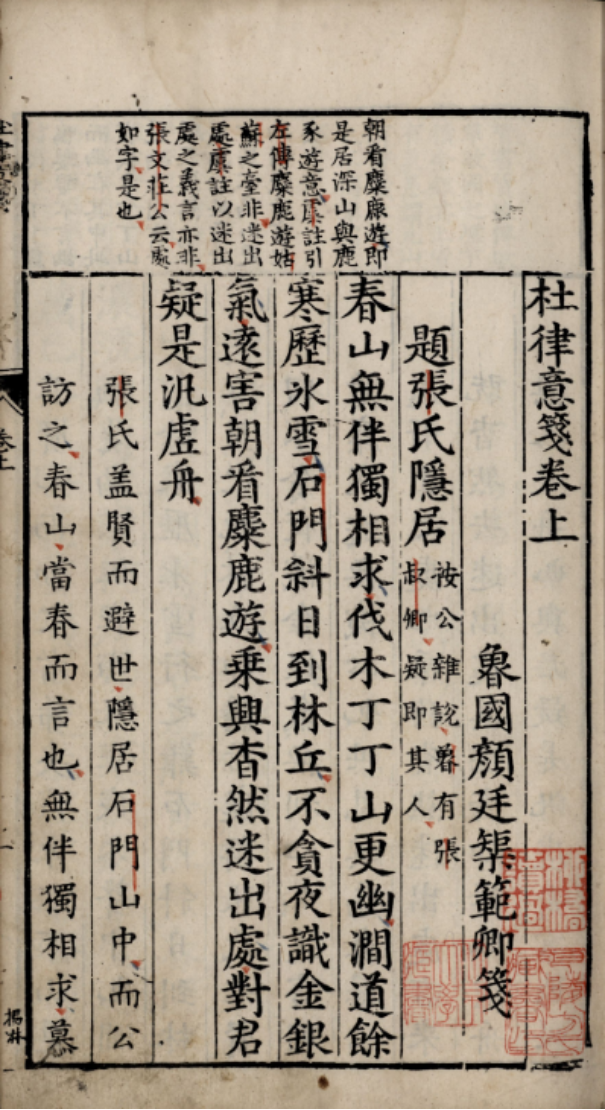 杜律意箋卷上
魯國顏廷榘範卿箋
題張氏隱居
按公雜說魯有張
叔卿疑即其人
春山無伴獨相求伐木丁丁山更幽澗道餘
寒歷氷雪石門斜日到林丘不貪夜識金銀
氣遠害朝看麋鹿遊乗興杳然迷出處對君
疑是汎虛舟
張氏盖賢而避世隱居石門山中而公
訪之春山當春而言也無伴獨相求慕
朝看麋鹿遊即
是居深山與鹿
豕遊意虞註引
左傳麋鹿遊姑
蘇之臺非迷出
處虞註以迷出
處之義言亦非
張文莊公云處
如字是也
卷上